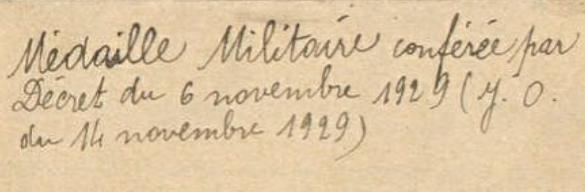 Médaille Militaire conférée par
Décret du 6 novembre 1929 (J. O.
du 14 novembre 1929)